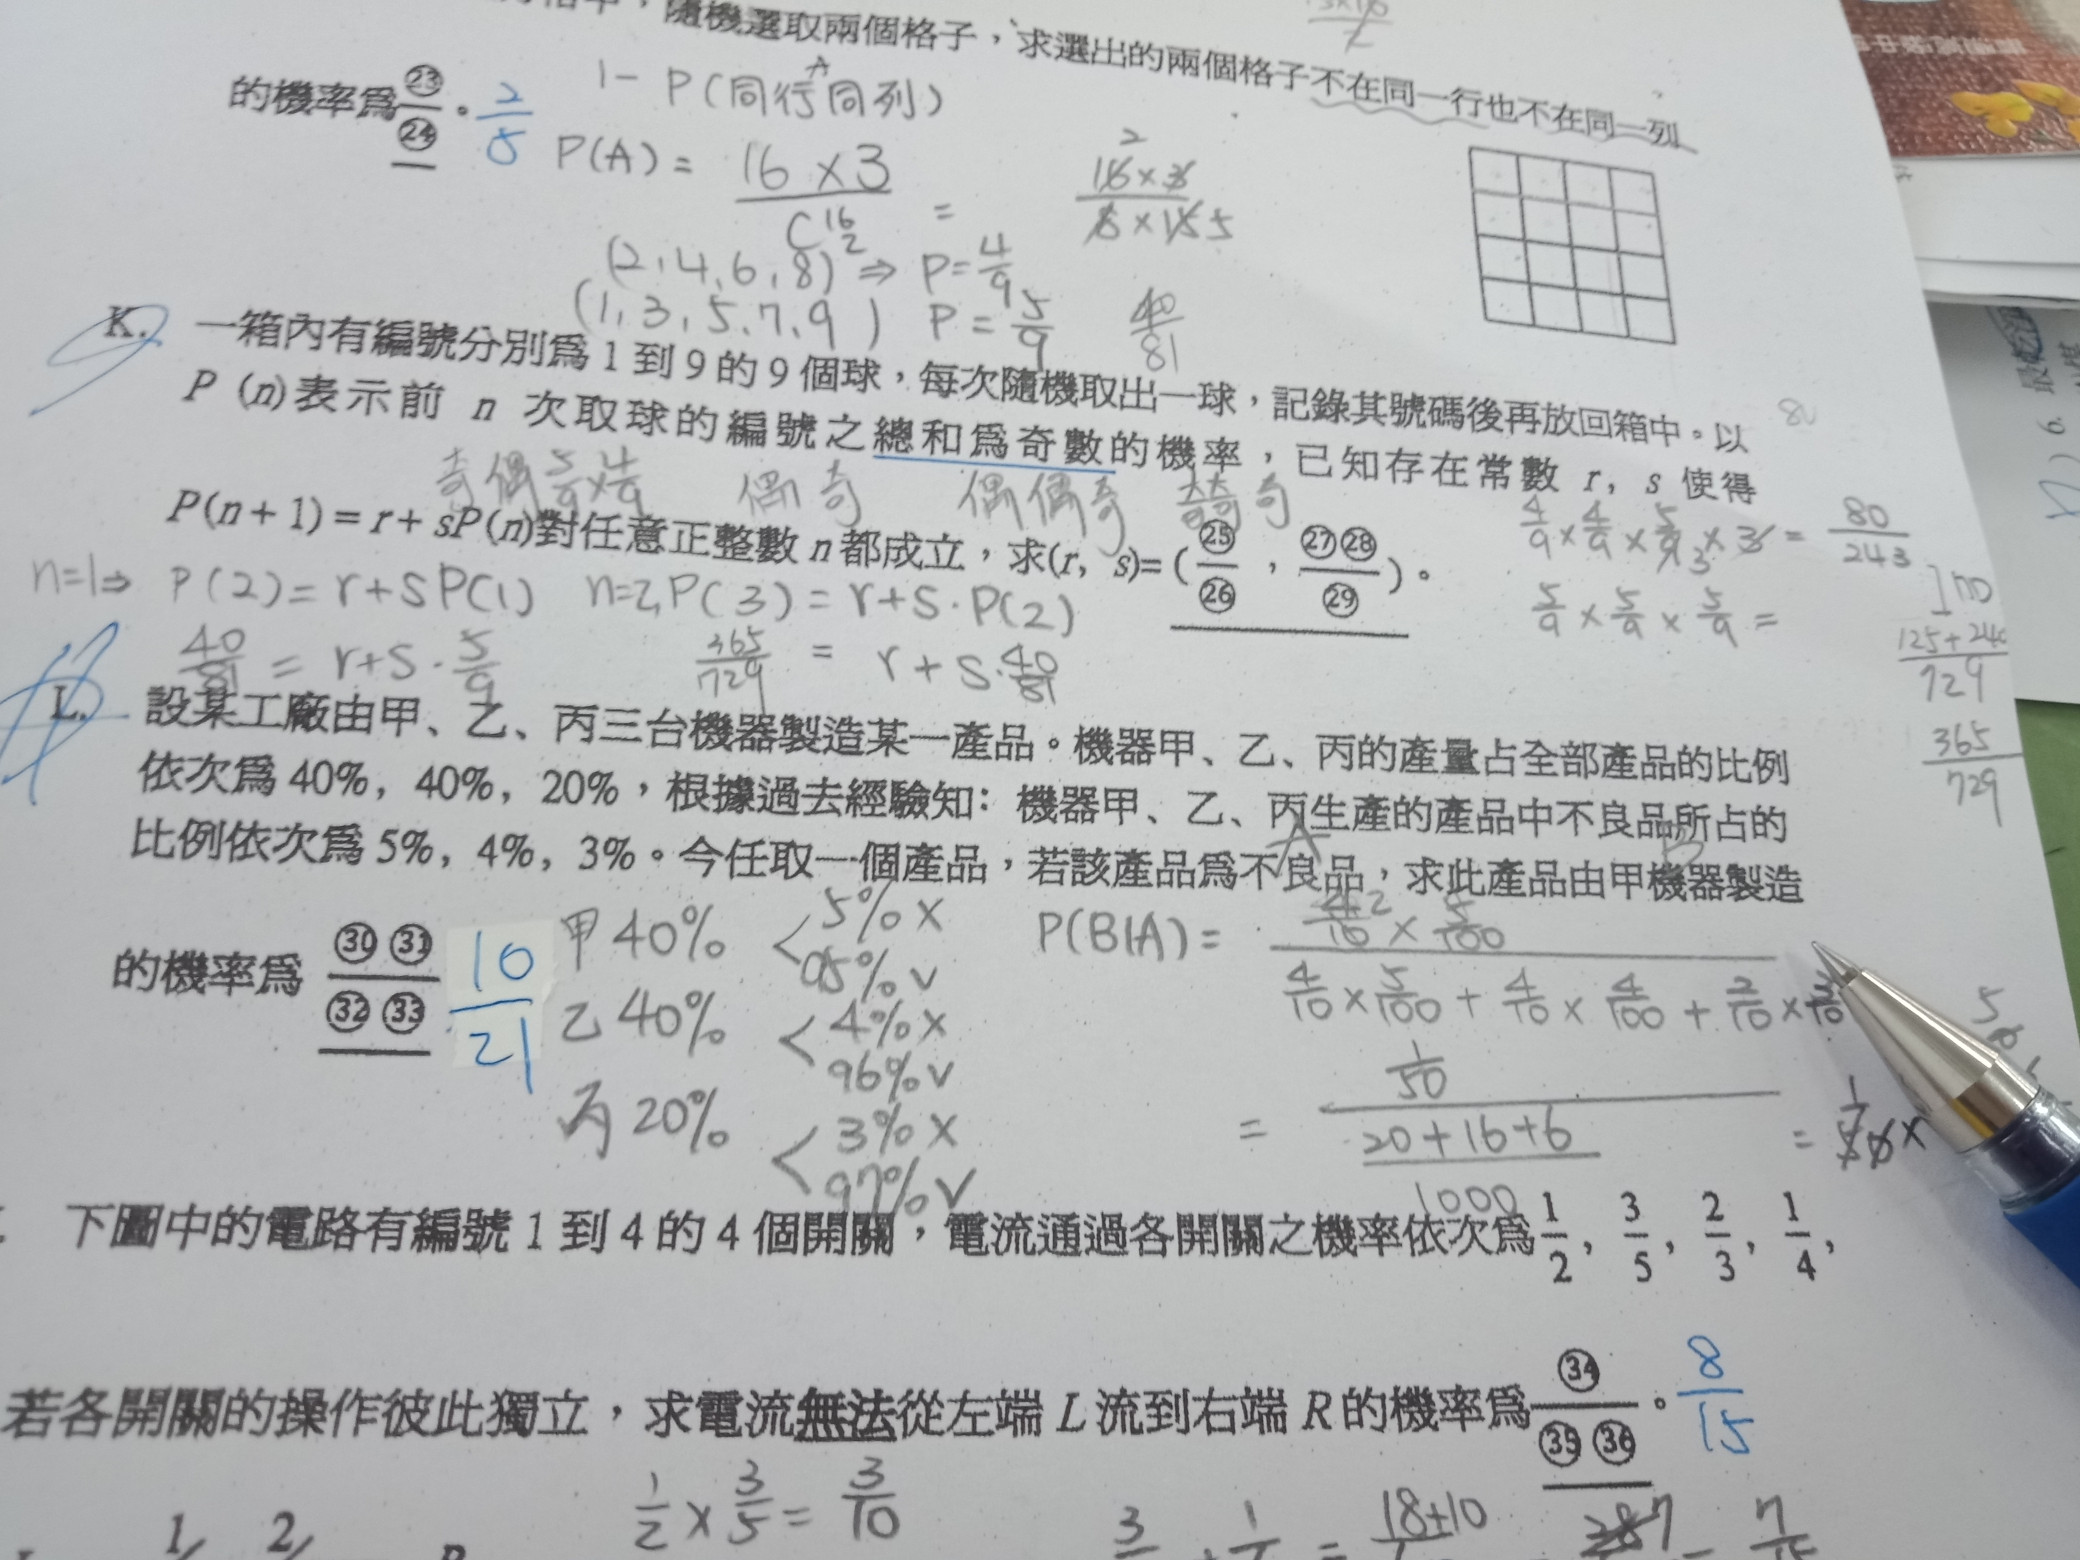 隨機選取兩個格子，求選出的兩個格子不在同一行也不在同一列
的機率為㉓/㉔。 2/5
1 - P(同行同列)
A
P(A) = 16 × 3 / C¹⁶₂ = 16 × 3 / 8 × 15
2
5
(2,4,6,8) ⇒ P = 4/9
(1,3,5,7,9) P = 5/9 40/81
K. 一箱內有編號分別為 1 到 9 的 9 個球，每次隨機取出一球，記錄其號碼後再放回箱中。以
P (n)表示前 n 次取球的編號之總和為奇數的機率，已知存在常數 r, s 使得
奇偶 5/9 × 4/9 偶奇 偶偶奇 奇奇奇
P(n + 1) = r + sP(n)對任意正整數 n 都成立，求(r, s)= (㉕/㉖ , ㉗㉘/㉙)。
4/9 × 4/9 × 5/9 × 3 = 80/243
3
n=1⇒ P(2) = r+sP(1) n=2, P(3) = r+s·P(2)
5/9 × 5/9 × 5/9 =
40/81 = r+s·5/9 365/729 = r+s·40/81
125+240/729
365/729
L. 設某工廠由甲、乙、丙三台機器製造某一產品。機器甲、乙、丙的產量占全部產品的比例
依次為 40%, 40%, 20%，根據過去經驗知: 機器甲、乙、丙生產的產品中不良品所占的
比例依次為 5%, 4%, 3%。今任取一個產品，若該產品為不良品，求此產品由甲機器製造
A B
的機率為 ㉚㉛/㉜㉝ 10/21
甲 40% < 5% x
95% v
乙 40% < 4% x
96% v
丙 20% < 3% x
97% v
P(B|A) =
4/10 × 5/100 + 4/10 × 4/100 + 2/10 ×
= 1/50 / 20+16+6/1000 =
下圖中的電路有編號 1 到 4 的 4 個開關，電流通過各開關之機率依次為 1/2, 3/5, 2/3, 1/4,
若各開關的操作彼此獨立，求電流無法從左端 L 流到右端 R 的機率為 ㉞/㉟㊱。 8/15
1/2 × 3/5 = 3/10
18+10